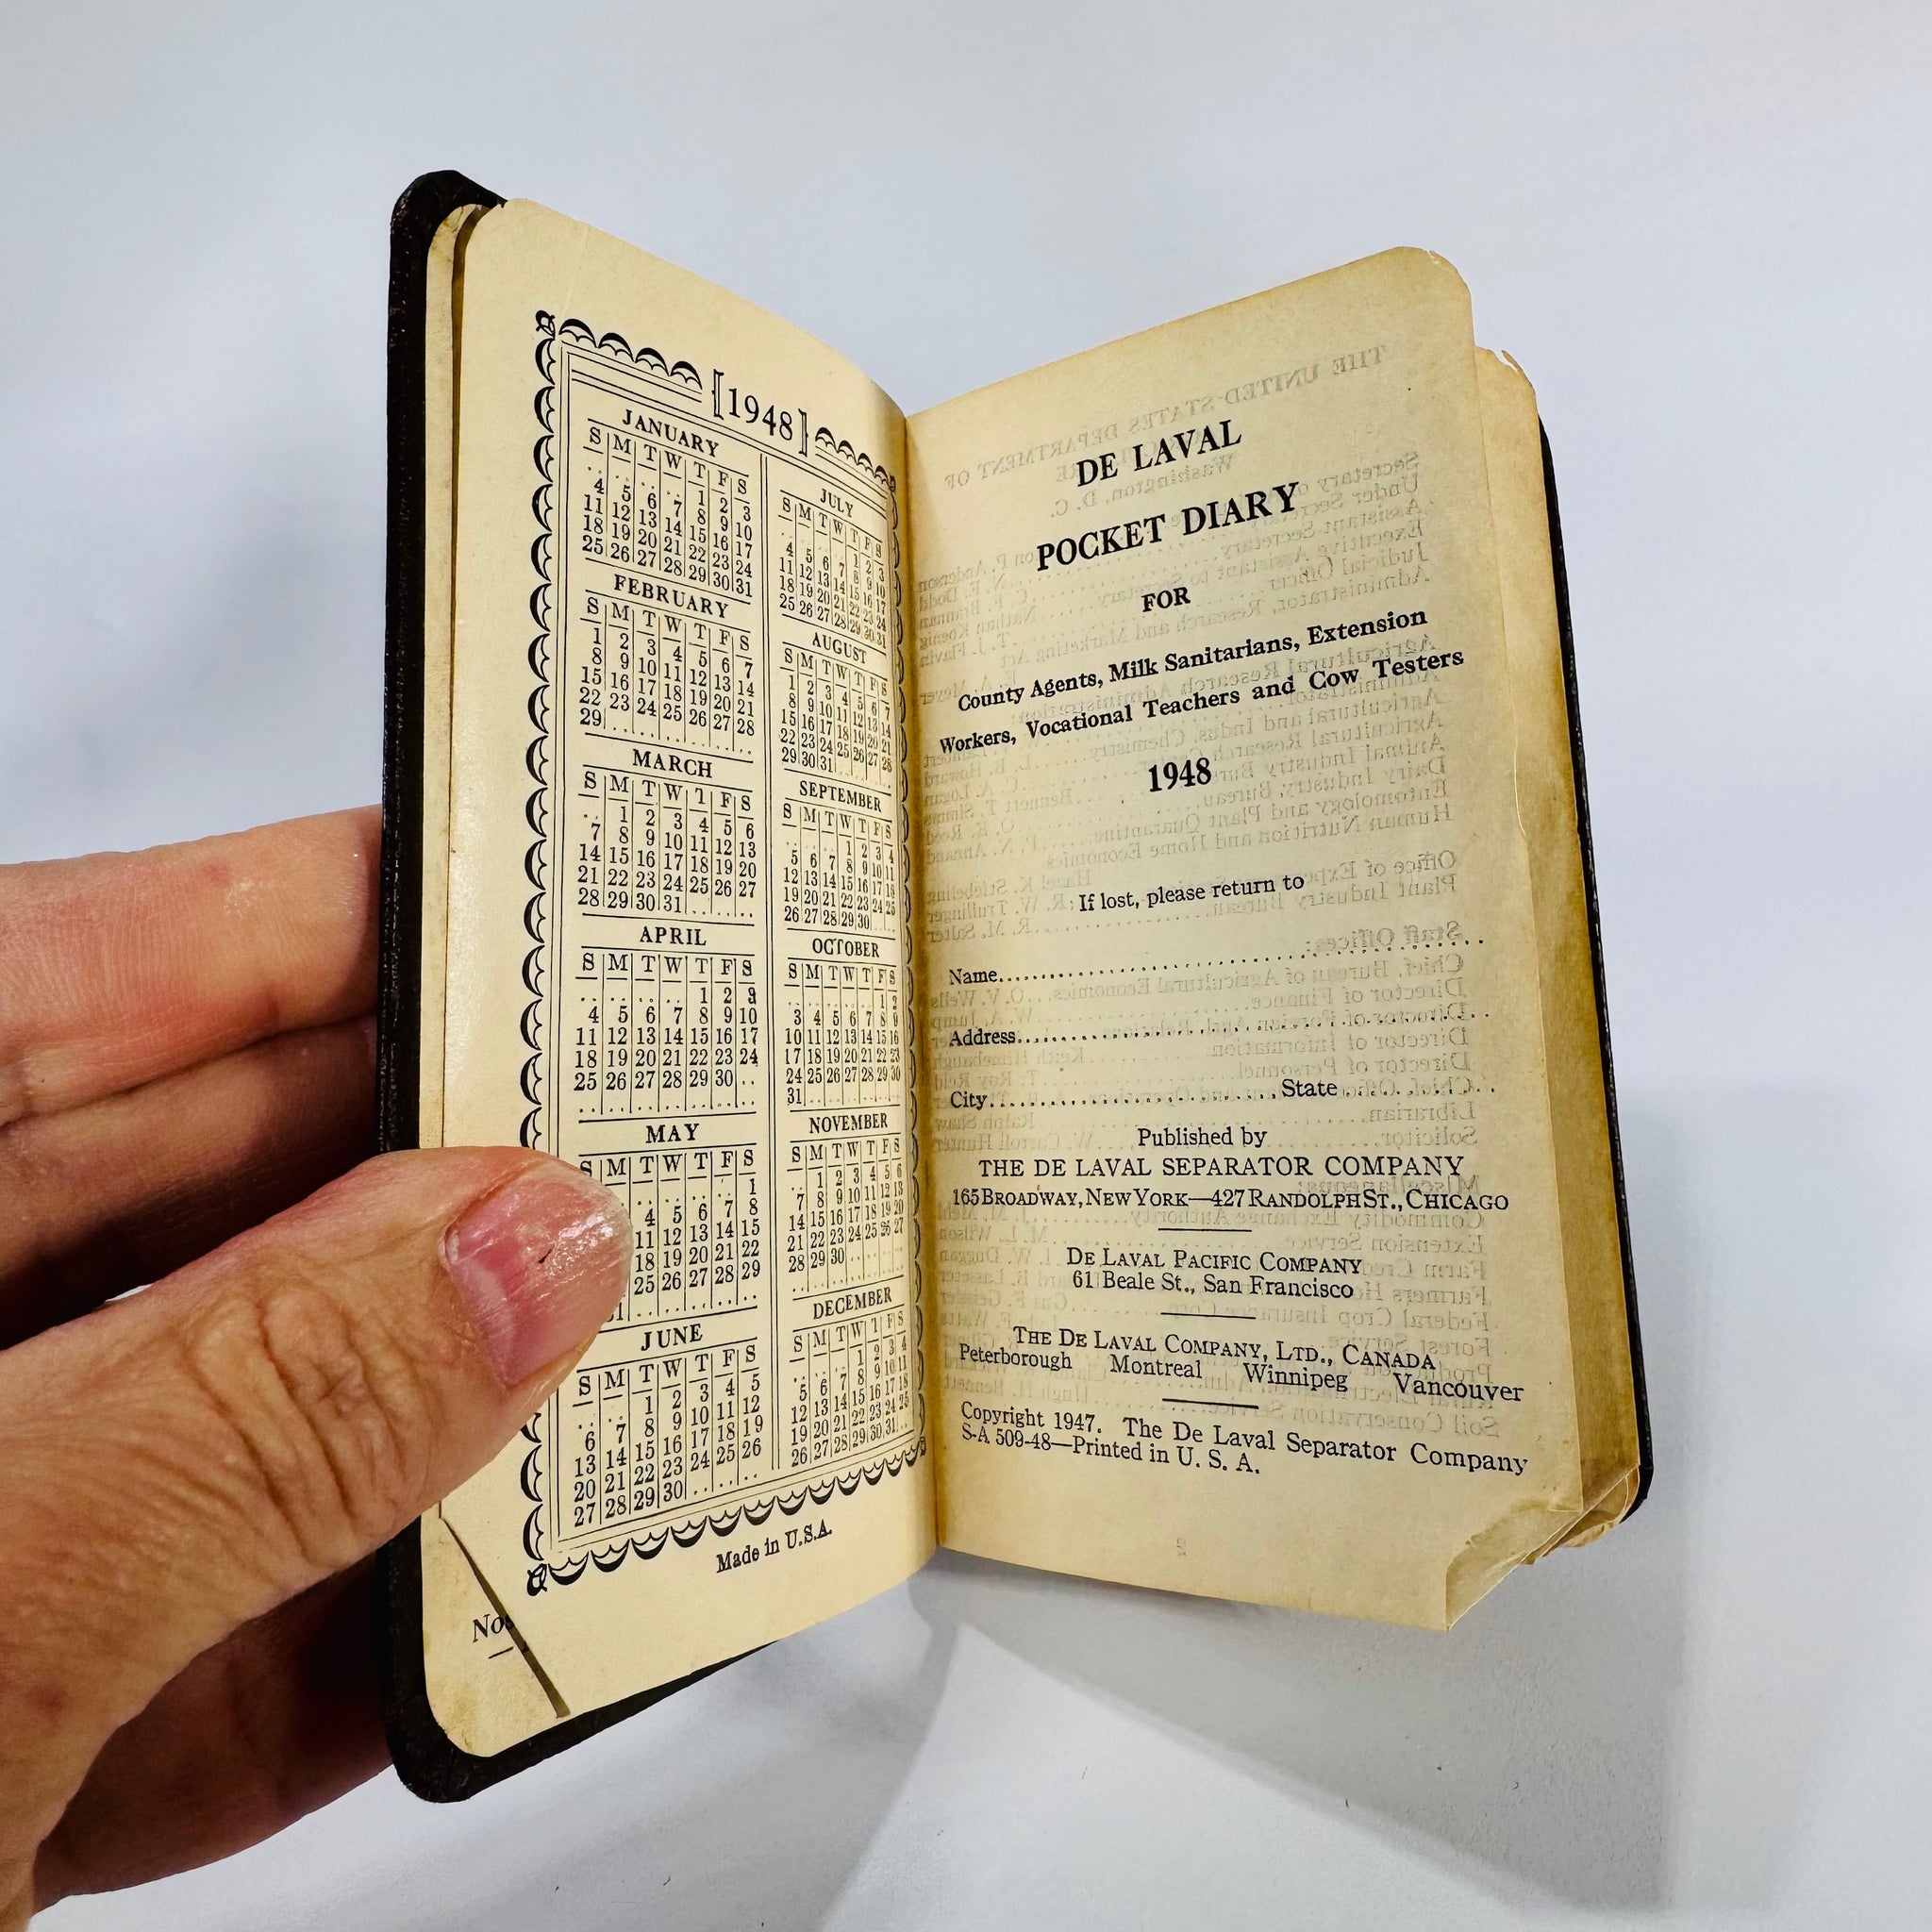 [1948]
JANUARY
S M T W T F S
.. .. .. .. 1 2 3
4 5 6 7 8 9 10
11 12 13 14 15 16 17
18 19 20 21 22 23 24
25 26 27 28 29 30 31
FEBRUARY
S M T W T F S
1 2 3 4 5 6 7
8 9 10 11 12 13 14
15 16 17 18 19 20 21
22 23 24 25 26 27 28
29 .. .. .. .. .. ..
MARCH
S M T W T F S
.. 1 2 3 4 5 6
7 8 9 10 11 12 13
14 15 16 17 18 19 20
21 22 23 24 25 26 27
28 29 30 31 .. .. ..
APRIL
S M T W T F S
.. .. .. .. 1 2 3
4 5 6 7 8 9 10
11 12 13 14 15 16 17
18 19 20 21 22 23 24
25 26 27 28 29 30 ..
.. .. .. .. .. .. ..
MAY
S M T W T F S
.. .. .. .. 1
4 5 6 7 8
11 12 13 14 15
18 19 20 21 22
25 26 27 28 29
.. .. .. .. ..
JUNE
S M T W T F S
.. .. 1 2 3 4 5
6 7 8 9 10 11 12
13 14 15 16 17 18 19
20 21 22 23 24 25 26
27 28 29 30 .. .. ..
JULY
S M T W T F S
.. .. .. .. 1 2 3
4 5 6 7 8 9 10
11 12 13 14 15 16 17
18 19 20 21 22 23 24
25 26 27 28 29 30 31
AUGUST
S M T W T F S
1 2 3 4 5 6 7
8 9 10 11 12 13 14
15 16 17 18 19 20 21
22 23 24 25 26 27 28
29 30 31 .. .. .. ..
SEPTEMBER
S M T W T F S
.. .. .. 1 2 3 4
5 6 7 8 9 10 11
12 13 14 15 16 17 18
19 20 21 22 23 24 25
26 27 28 29 30 .. ..
OCTOBER
S M T W T F S
.. .. .. .. .. 1 2
3 4 5 6 7 8 9
10 11 12 13 14 15 16
17 18 19 20 21 22 23
24 25 26 27 28 29 30
31 .. .. .. .. .. ..
NOVEMBER
S M T W T F S
.. 1 2 3 4 5 6
7 8 9 10 11 12 13
14 15 16 17 18 19 20
21 22 23 24 25 26 27
28 29 30 .. .. .. ..
.. .. .. .. .. .. ..
DECEMBER
S M T W T F S
.. .. .. 1 2 3 4
5 6 7 8 9 10 11
12 13 14 15 16 17 18
19 20 21 22 23 24 25
26 27 28 29 30 31 ..
Made in U.S.A.
DE LAVAL
POCKET DIARY
FOR
County Agents, Milk Sanitarians, Extension
Workers, Vocational Teachers and Cow Testers
1948
If lost, please return to
Name
Address
City State
Published by
THE DE LAVAL SEPARATOR COMPANY
165 BROADWAY, NEW YORK—427 RANDOLPH ST., CHICAGO
DE LAVAL PACIFIC COMPANY
61 Beale St., San Francisco
THE DE LAVAL COMPANY, LTD., CANADA
Peterborough Montreal Winnipeg Vancouver
Copyright 1947. The De Laval Separator Company
S-A 509-48—Printed in U. S. A.